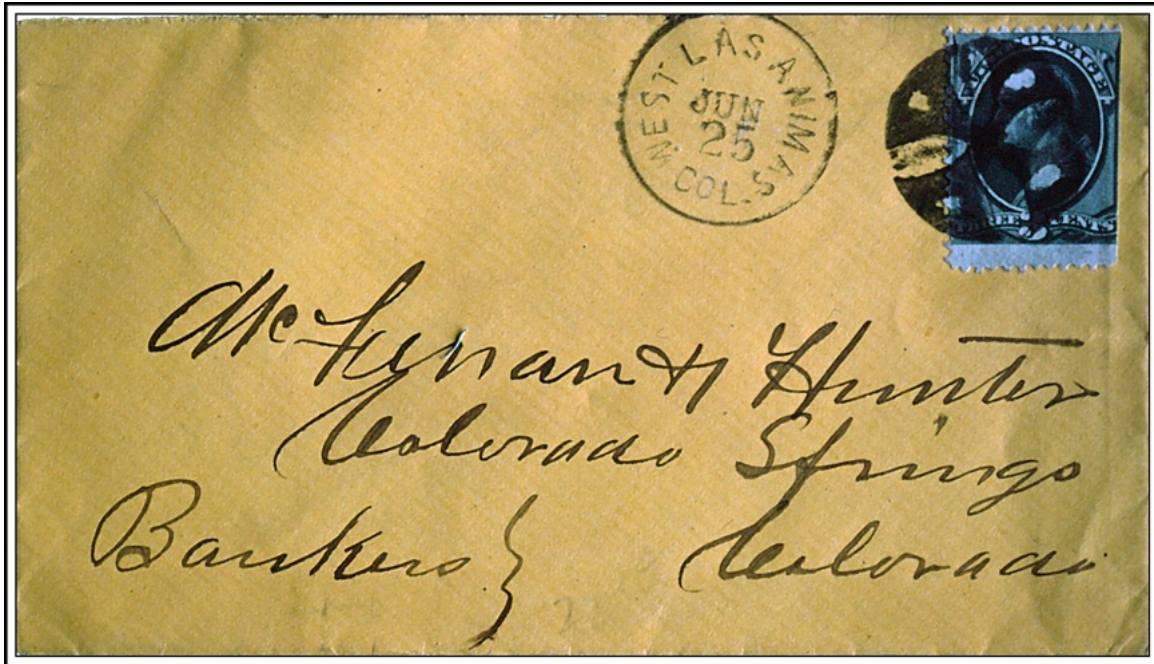 WEST LAS ANIMAS
JUN
25
COL.
U.S. POSTAGE
THREE CENTS
McFerran & Hunter
Colorado Springs
Bankers } Colorado